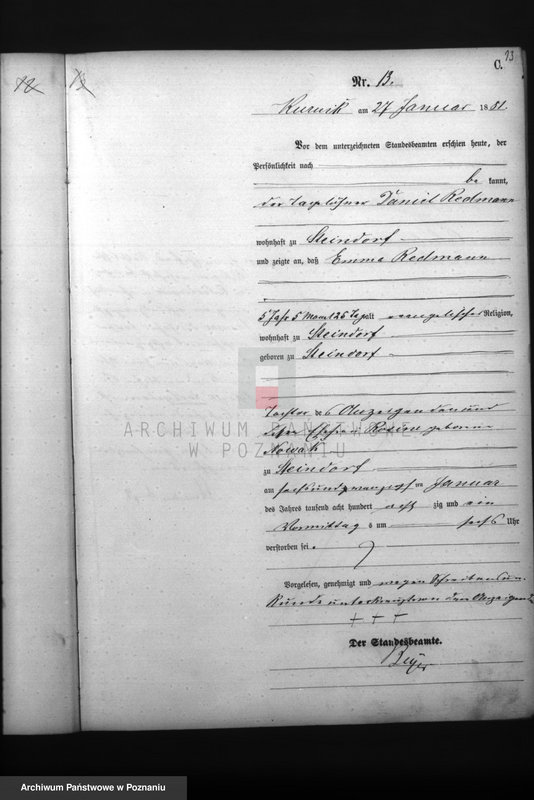 12 13
C. 13
Nr. 13.
Kurnik am 27 Januar 1881
Vor dem unterzeichneten Standesbeamten erschien heute, der
Persönlichkeit nach
be kannt,
der Tagelöhner Daniel Redmann
wohnhaft zu Steindorf
und zeigte an, daß Emma Redmann
5 Jahr 5 Monat 26 Tage alt evangelischer Religion,
wohnhaft zu Steindorf
geboren zu Steindorf
Tochter des Anzeigenden und
dessen Ehefrau geborene
Nowak
zu Steindorf
am sechsundzwanzigsten Januar
des Jahres tausend acht hundert acht zig und ein
Vormittag s um sechs Uhr
verstorben sei.
Vorgelesen, genehmigt und wegen Schreibensun-
kunde unterkreuzt von dem Anzeigenden
+ + +
Der Standesbeamte.
ARCHIWUM PAŃSTWOWE
W POZNANIU
Archiwum Państwowe w Poznaniu